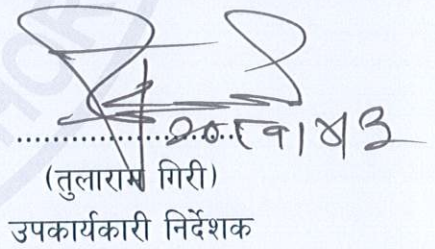 २०८१।४।३
(तुलाराम गिरी)
उपकार्यकारी निर्देशक